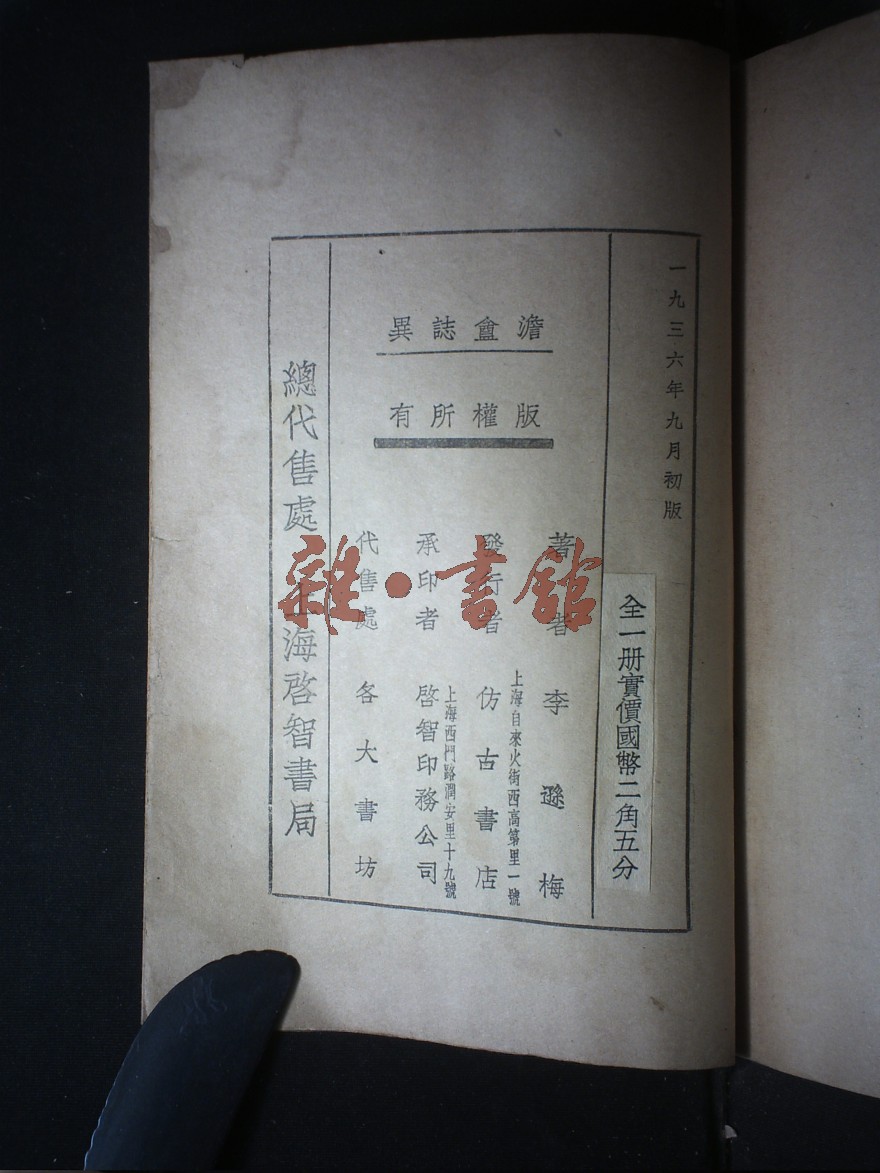 一九三六年九月初版
全一册實價國幣二角五分
澹盦誌異
版權所有
著者 李遜梅
發行者 仿古書店
上海自來火街西高第里一號
承印者 啓智印務公司
上海西門路潤安里十九號
代售處 各大書坊
總代售處 上海啓智書局
雜·書館